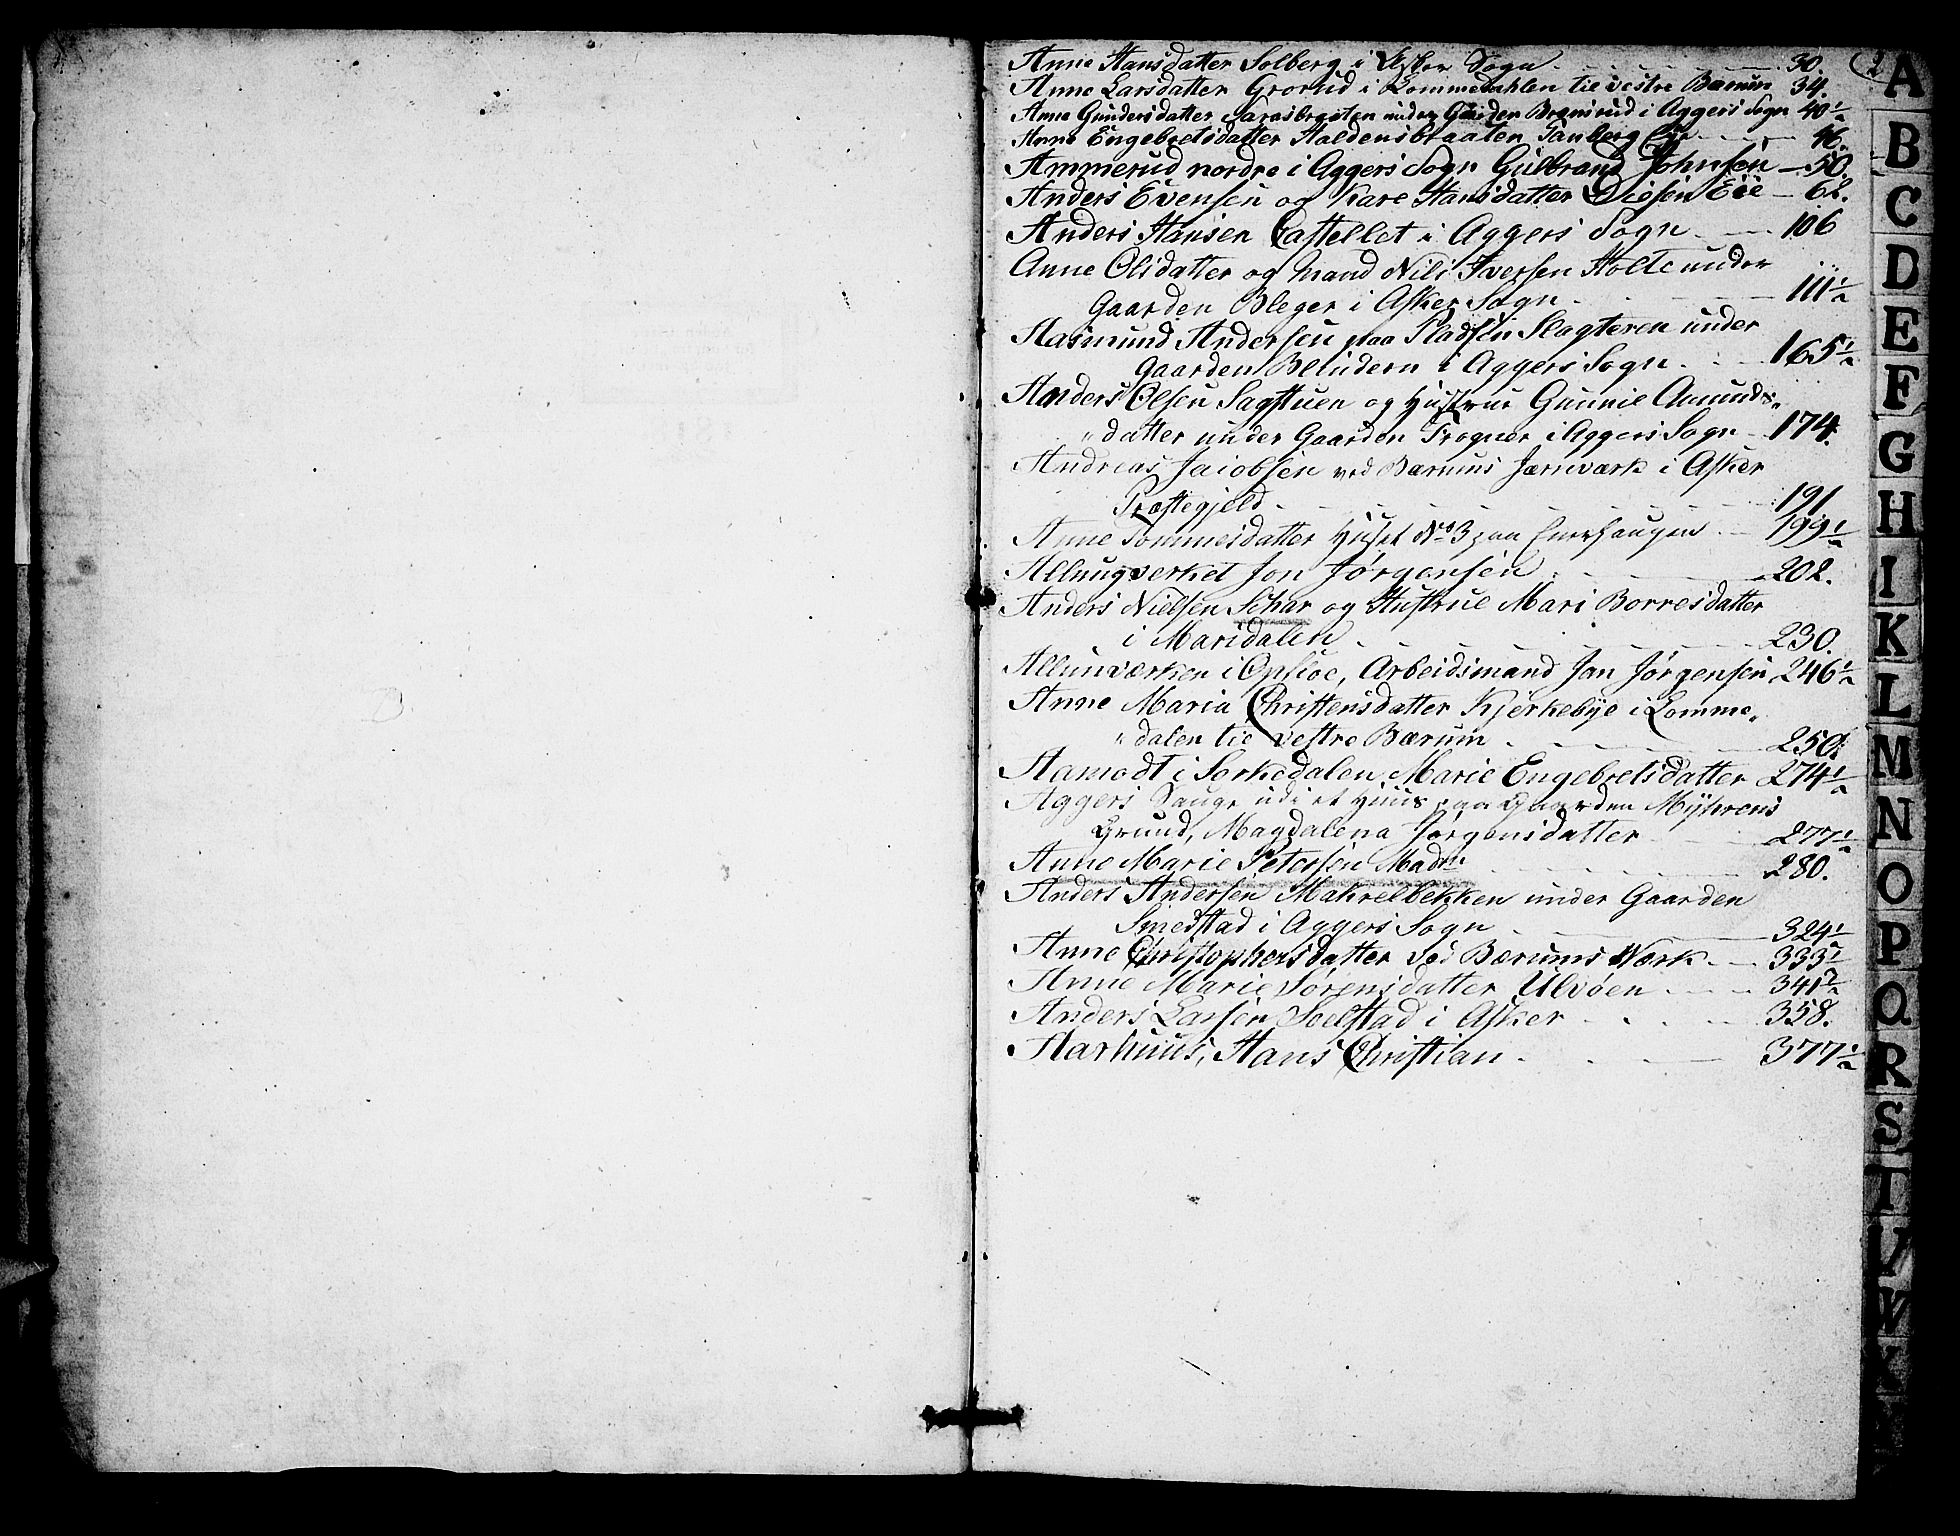 2
Anne Hansdatter Solberg i Asker Sogn 30.
Anne Larsdatter Grorud i Lommedahlen til vestre Bærum 34.
Anne Gundersdatter under Gaarden i Aggers Sogn 40½
Anne Engebretsdatter Haldensbraaten Tanberg Eie 46.
Ammerud nordre i Aggers Sogn Gulbrand Johnsen 50.
Anders Evensen og Kare Hansdatter Eie 62.
Anders Hansen Castellet i Aggers Sogn 106
Anne Olsdatter og Mand Nils Iversen Holte under
Gaarden Bleger i Asker Sogn 111½
Aasmund Andersen paa Pladsen Slagteren under
Gaarden Blindern i Aggers Sogn 165½
Anders Olsen Sagstuen og Hustrue Gunnil Amunds„
„datter under Gaarden Frogner i Aggers Sogn 174.
Andreas Jacobsen ved Bærums Jærnværk i Asker
Præstegjeld 191
Anne Tommesdatter Huset No 3 paa Enerhaugen 199½
Allungverket Jon Jørgensen 202.
Anders Nielsen Schar og Hustrue Mari Borresdatter
i Maridalen 230.
Allunværken i Opsloe, Arbeidsmand Jon Jørgensen 246½
Anne Maria Christensdatter Kjerkebye i Lomme„
„dalen til vestre Bærum 250.
Aamodt i Sørkedalen Marie Engebretsdatter 274½
Aggers Hauge udi et Huus paa Gaarden Myhrens
Grund, Magdalena Jørgensdatter 277½
Anne Marie Petersen Madm 280.
Anders Andersen Makrelbekken under Gaarden
Smedstad i Aggers Sogn 324½
Anne Christophersdatter ved Bærums Værk 333½
Anne Marie Sørensdatter Ulvøen 341½
Anders Larsen Soelstad i Asker 358.
Aarhuus, Hans Christian 377½
A
B
C
D
E
F
G
H
I
K
L
M
N
O
P
Q
R
S
T
V
W